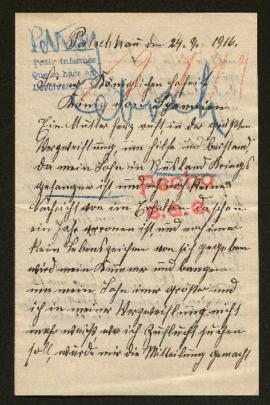 Patschkau den 24. 9. 1916.
Pide informes
König von Spanien
Ein Mutterherz ruft in der größten
Verzweiflung um Hilfe und Beistand
Da mein Sohn in Rußland Kriegs
gefangen ist und ich keine
Nachricht von im Erhalten da schon
ein Jahr verronen ist und noch imer
kein Lebenszeichen von sich gegeben
wird mein Kumer und bangen
um mein Sohn imer größer und
ich in meiner Verzweiflung nicht
mehr weiß wo ich Zuflucht suchen
soll, würde mir die Mitteilung gemacht